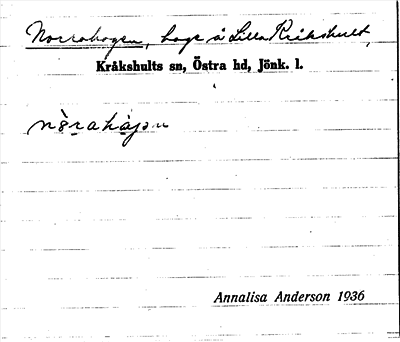 Norrahagen, hage å Lilla Kråkshult,
Kråkshults sn, Östra hd, Jönk. l.
Annalisa Anderson 1936